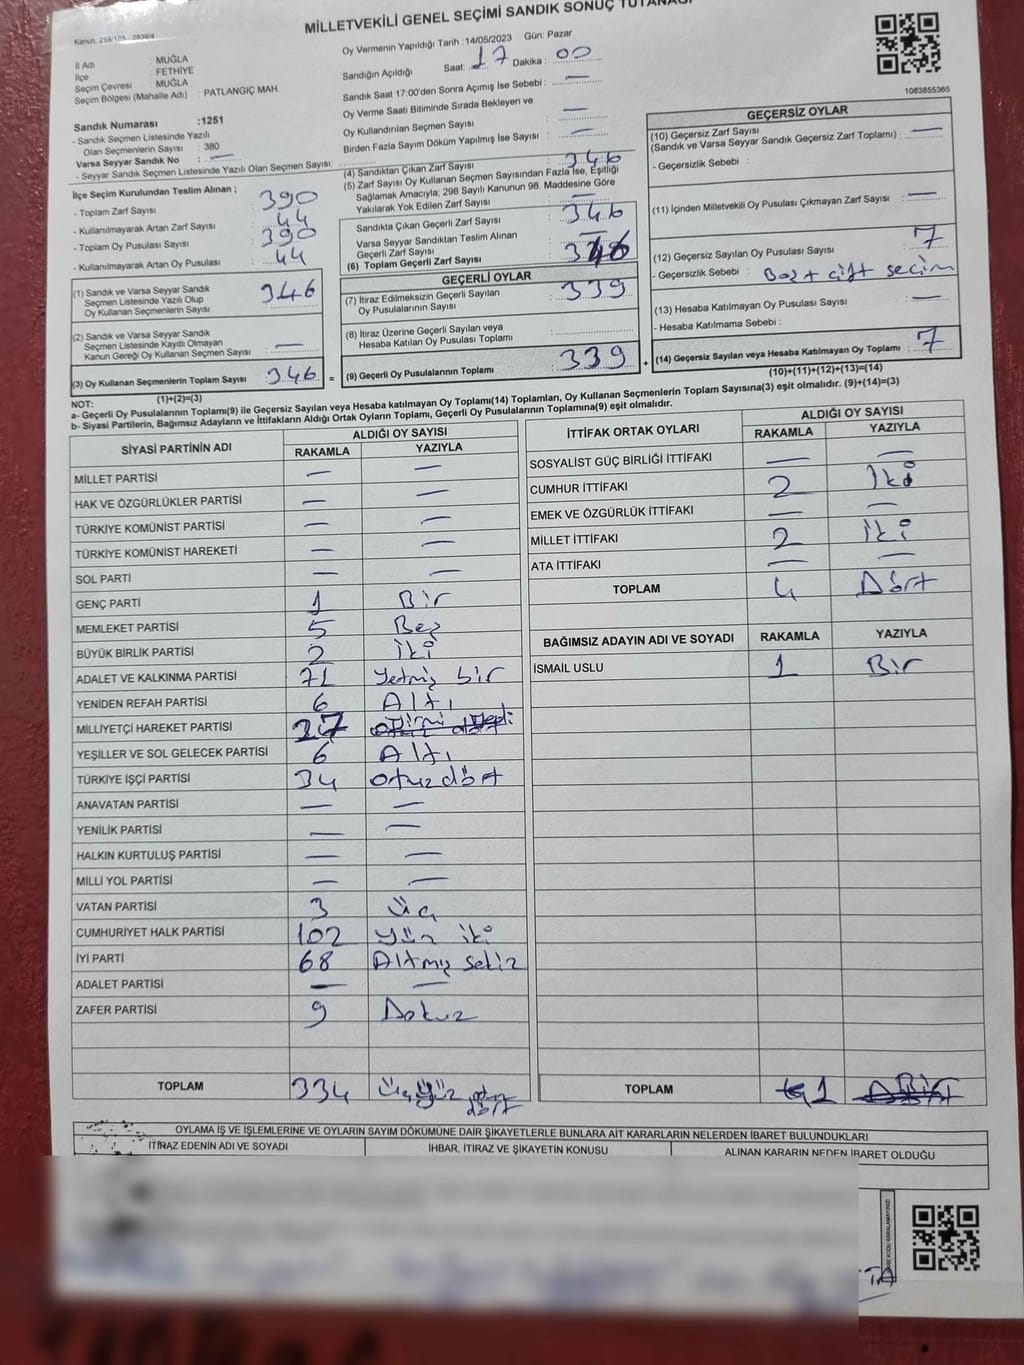 MİLLETVEKİLİ GENEL SEÇİMİ SANDIK SONUÇ TUTANAĞI
Kanun, 298/105 - 2839/4
İl Adı : MUĞLA
İlçe : FETHİYE
Seçim Çevresi : MUĞLA
Seçim Bölgesi (Mahalle Adı) : PATLANGIÇ MAH.
Sandık Numarası :1251
- Sandık Seçmen Listesinde Yazılı
Olan Seçmenlerin Sayısı : 380
Varsa Seyyar Sandık No : —
- Seyyar Sandık Seçmen Listesinde Yazılı Olan Seçmen Sayısı:
Oy Vermenin Yapıldığı Tarih : 14/05/2023 Gün: Pazar
Sandığın Açıldığı Saat: 17 Dakika : 00
Sandık Saat 17:00'den Sonra Açımış İse Sebebi : —
Oy Verme Saati Bitiminde Sırada Bekleyen ve
Oy Kullandırılan Seçmen Sayısı : —
Birden Fazla Sayım Döküm Yapılmış İse Sayısı : —
1083855365
İlçe Seçim Kurulundan Teslim Alınan ;
- Toplam Zarf Sayısı : 390
- Kullanılmayarak Artan Zarf Sayısı : 44
- Toplam Oy Pusulası Sayısı : 390
- Kullanılmayarak Artan Oy Pusulası : 44
(1) Sandık ve Varsa Seyyar Sandık
Seçmen Listesinde Yazılı Olup
Oy Kullanan Seçmenlerin Sayısı : 346
(2) Sandık ve Varsa Seyyar Sandık
Seçmen Listesinde Kayıtlı Olmayan
Kanun Gereği Oy Kullanan Seçmen Sayısı : —
(3) Oy Kullanan Seçmenlerin Toplam Sayısı : 346 =
(1)+(2)=(3)
(4) Sandıktan Çıkan Zarf Sayısı : 346
(5) Zarf Sayısı Oy Kullanan Seçmen Sayısından Fazla İse, Eşitliği
Sağlamak Amacıyla; 298 Sayılı Kanunun 98. Maddesine Göre
Yakılarak Yok Edilen Zarf Sayısı : —
Sandıkta Çıkan Geçerli Zarf Sayısı : 346
Varsa Seyyar Sandıktan Teslim Alınan
Geçerli Zarf Sayısı : —
(6) Toplam Geçerli Zarf Sayısı : 346
GEÇERLİ OYLAR
(7) İtiraz Edilmeksizin Geçerli Sayılan
Oy Pusulalarının Sayısı : 339
(8) İtiraz Üzerine Geçerli Sayılan veya
Hesaba Katılan Oy Pusulası Toplamı :
(9) Geçerli Oy Pusulalarının Toplamı : 339 +
GEÇERSİZ OYLAR
(10) Geçersiz Zarf Sayısı
(Sandık ve Varsa Seyyar Sandık Geçersiz Zarf Toplamı) : —
- Geçersizlik Sebebi :
(11) İçinden Milletvekili Oy Pusulası Çıkmayan Zarf Sayısı : —
(12) Geçersiz Sayılan Oy Pusulası Sayısı : 7
- Geçersizlik Sebebi : Boş + çift seçim
(13) Hesaba Katılmayan Oy Pusulası Sayısı : —
- Hesaba Katılmama Sebebi :
(14) Geçersiz Sayılan veya Hesaba Katılmayan Oy Toplamı : 7
(10)+(11)+(12)+(13)=(14)
NOT:
a- Geçerli Oy Pusulalarının Toplamı(9) ile Geçersiz Sayılan veya Hesaba katılmayan Oy Toplamı(14) Toplamları, Oy Kullanan Seçmenlerin Toplam Sayısına(3) eşit olmalıdır. (9)+(14)=(3)
b- Siyasi Partilerin, Bağımsız Adayların ve İttifakların Aldığı Ortak Oyların Toplamı, Geçerli Oy Pusulalarının Toplamına(9) eşit olmalıdır.
SİYASİ PARTİNİN ADI ALDIĞI OY SAYISI
RAKAMLA YAZIYLA
MİLLET PARTİSİ — —
HAK VE ÖZGÜRLÜKLER PARTİSİ — —
TÜRKİYE KOMÜNİST PARTİSİ — —
TÜRKİYE KOMÜNİST HAREKETİ — —
SOL PARTİ — —
GENÇ PARTİ 1 Bir
MEMLEKET PARTİSİ 5 Beş
BÜYÜK BİRLİK PARTİSİ 2 İki
ADALET VE KALKINMA PARTİSİ 71 Yetmiş bir
YENİDEN REFAH PARTİSİ 6 Altı
MİLLİYETÇİ HAREKET PARTİSİ 27
YEŞİLLER VE SOL GELECEK PARTİSİ 6 Altı
TÜRKİYE İŞÇİ PARTİSİ 34 Otuz dört
ANAVATAN PARTİSİ — —
YENİLİK PARTİSİ — —
HALKIN KURTULUŞ PARTİSİ — —
MİLLİ YOL PARTİSİ — —
VATAN PARTİSİ 3 Üç
CUMHURİYET HALK PARTİSİ 102 Yüz iki
İYİ PARTİ 68 Altmış sekiz
ADALET PARTİSİ — —
ZAFER PARTİSİ 9 Dokuz
TOPLAM 334 Üç Yüz otuz dört
İTTİFAK ORTAK OYLARI ALDIĞI OY SAYISI
RAKAMLA YAZIYLA
SOSYALİST GÜÇ BİRLİĞİ İTTİFAKI — —
CUMHUR İTTİFAKI 2 İki
EMEK VE ÖZGÜRLÜK İTTİFAKI — —
MİLLET İTTİFAKI 2 İki
ATA İTTİFAKI — —
TOPLAM 4 Dört
BAĞIMSIZ ADAYIN ADI VE SOYADI RAKAMLA YAZIYLA
İSMAİL USLU 1 Bir
TOPLAM 1 Bir
OYLAMA İŞ VE İŞLEMLERİNE VE OYLARIN SAYIM DÖKÜMÜNE DAİR ŞİKAYETLERLE BUNLARA AİT KARARLARIN NELERDEN İBARET BULUNDUKLARI
İTİRAZ EDENİN ADI VE SOYADI İHBAR, İTİRAZ VE ŞİKAYETİN KONUSU ALINAN KARARIN NEDEN İBARET OLDUĞU